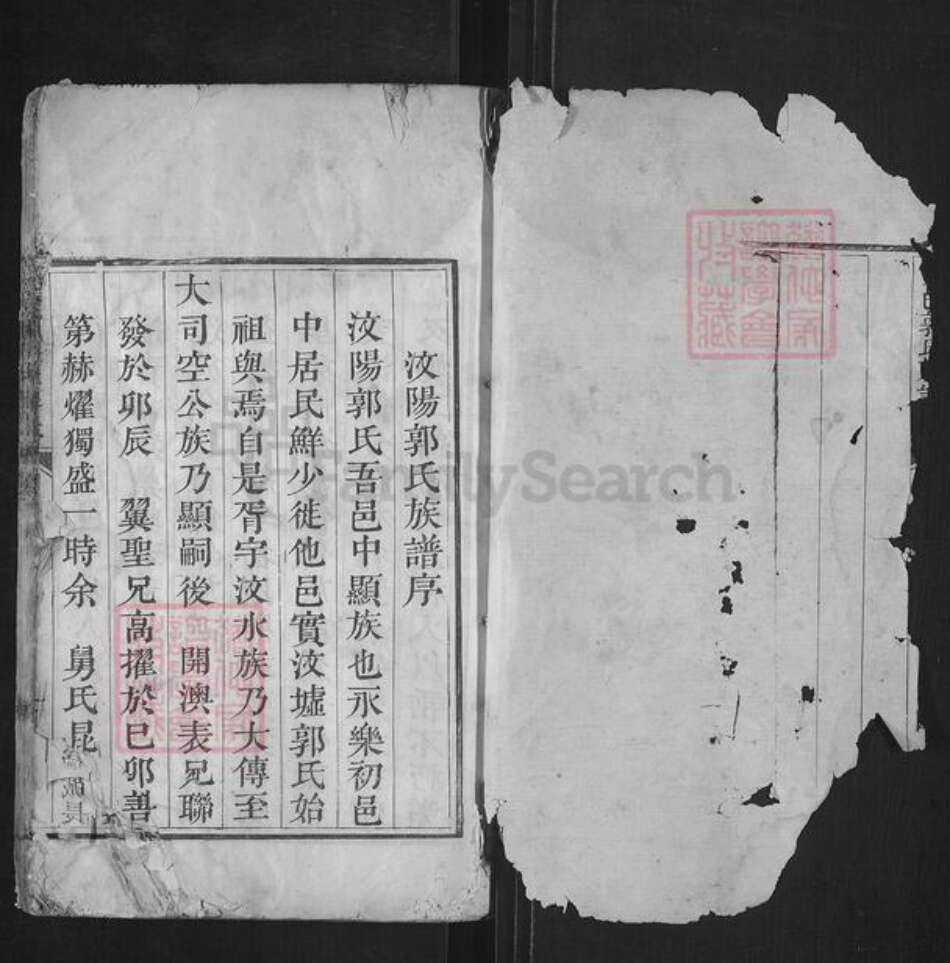 汶陽郭氏族譜序
汶陽郭氏吾邑中顯族也永樂初邑
中居民鮮少徙他邑實汶墟郭氏始
祖與焉自是胥宇汶水族乃大傳至
大司空公族乃顯嗣後 開澳表兄聯
發於卯辰 翼聖兄高擢於巳卯善
第赫燿獨盛一時余 舅氏昆
FamilySearch